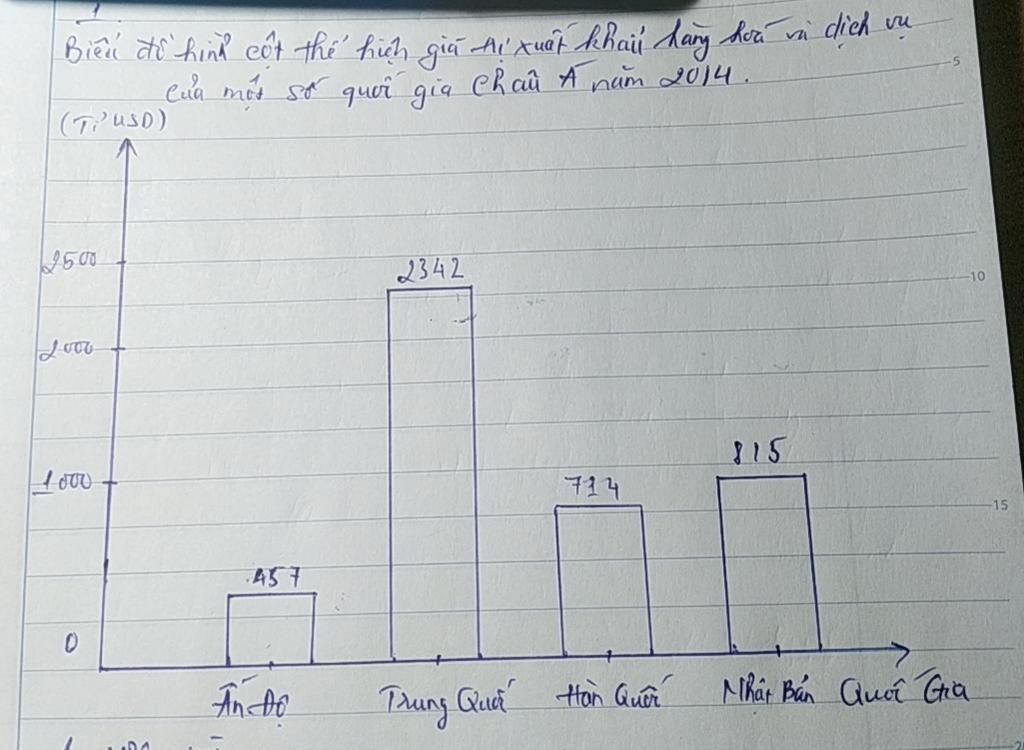 1
Biểu đồ hình cột thể hiện giá trị xuất khẩu hàng hoá và dịch vụ
của một số quốc gia Châu Á năm 2014.
(Tỉ USD)
2500
2342
2000
815
1000
714
457
0
Ấn Độ Trung Quốc Hàn Quốc Nhật Bản Quốc Gia
5
10
15